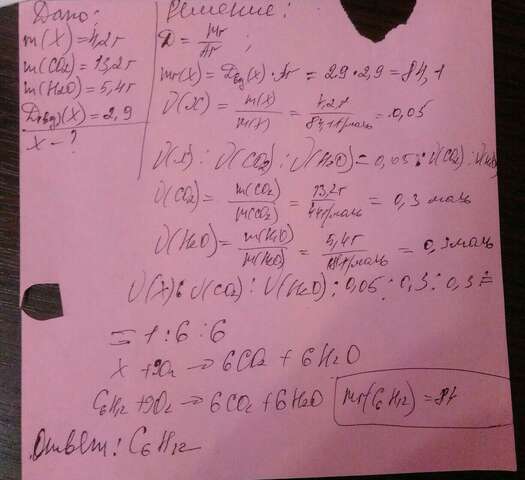 Дано:
m(X)=4,2г
m(CO2)=13,2г
m(H2O)=5,4г
D(возд)(X)=2,9
X-?
Решение:
D = Mr/Ar ;
Mr(X) = Dвозд(X) · Ar = 29 · 2,9 = 84,1
ν(X) = m(X)/m(X) = 4,2г/84,1г/моль = 0,05
ν(X) : ν(CO2) : ν(H2O) = 0,05 : ν(CO2) : ν(H2O)
ν(CO2) = m(CO2)/m(CO2) = 13,2г/44г/моль = 0,3 моль
ν(H2O) = m(H2O)/m(H2O) = 5,4г/18г/моль = 0,3моль
ν(X) : ν(CO2) : ν(H2O) : 0,05 : 0,3 : 0,3 =
= 1 : 6 : 6
X + 9O2 → 6CO2 + 6H2O
C6H12 + 9O2 → 6CO2 + 6H2O
Mr(C6H12) = 84
Ответ: C6H12